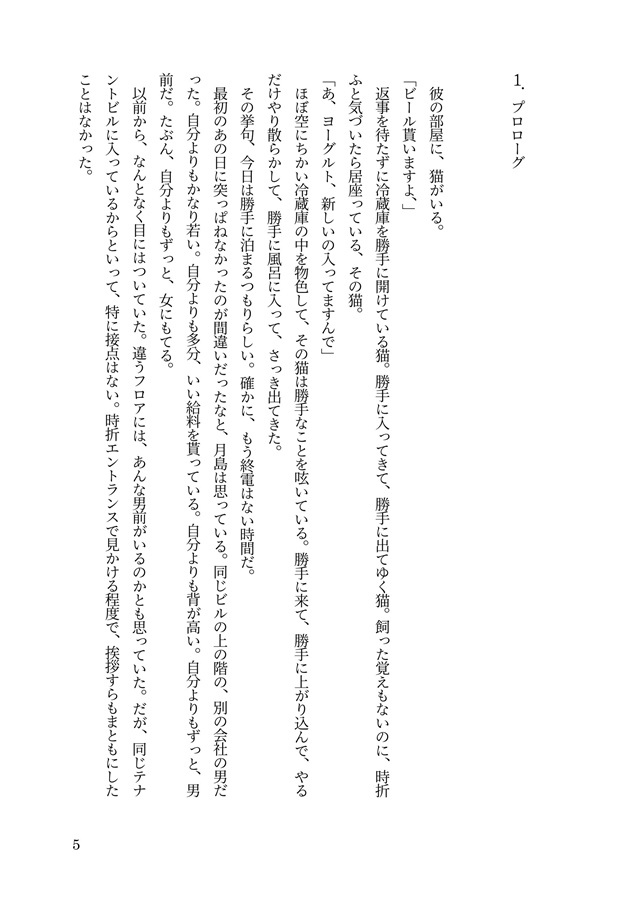 1. プロローグ
彼の部屋に、猫がいる。
「ビール貰いますよ、」
返事を待たずに冷蔵庫を勝手に開けている猫。勝手に入ってきて、勝手に出てゆく猫。飼った覚えもないのに、時折
ふと気づいたら居座っている、その猫。
「あ、ヨーグルト、新しいの入ってますんで」
ほぼ空にちかい冷蔵庫の中を物色して、その猫は勝手なことを呟いている。勝手に来て、勝手に上がり込んで、やる
だけやり散らかして、勝手に風呂に入って、さっき出てきた。
その挙句、今日は勝手に泊まるつもりらしい。確かに、もう終電はない時間だ。
最初のあの日に突っぱねなかったのが間違いだったなと、月島は思っている。同じビルの上の階の、別の会社の男だ
った。自分よりもかなり若い。自分よりも多分、いい給料を貰っている。自分よりも背が高い。自分よりもずっと、男
前だ。たぶん、自分よりもずっと、女にもてる。
以前から、なんとなく目にはついていた。違うフロアには、あんな男前がいるのかとも思っていた。だが、同じテナ
ントビルに入っているからといって、特に接点はない。時折エントランスで見かける程度で、挨拶すらもまともにした
ことはなかった。
5